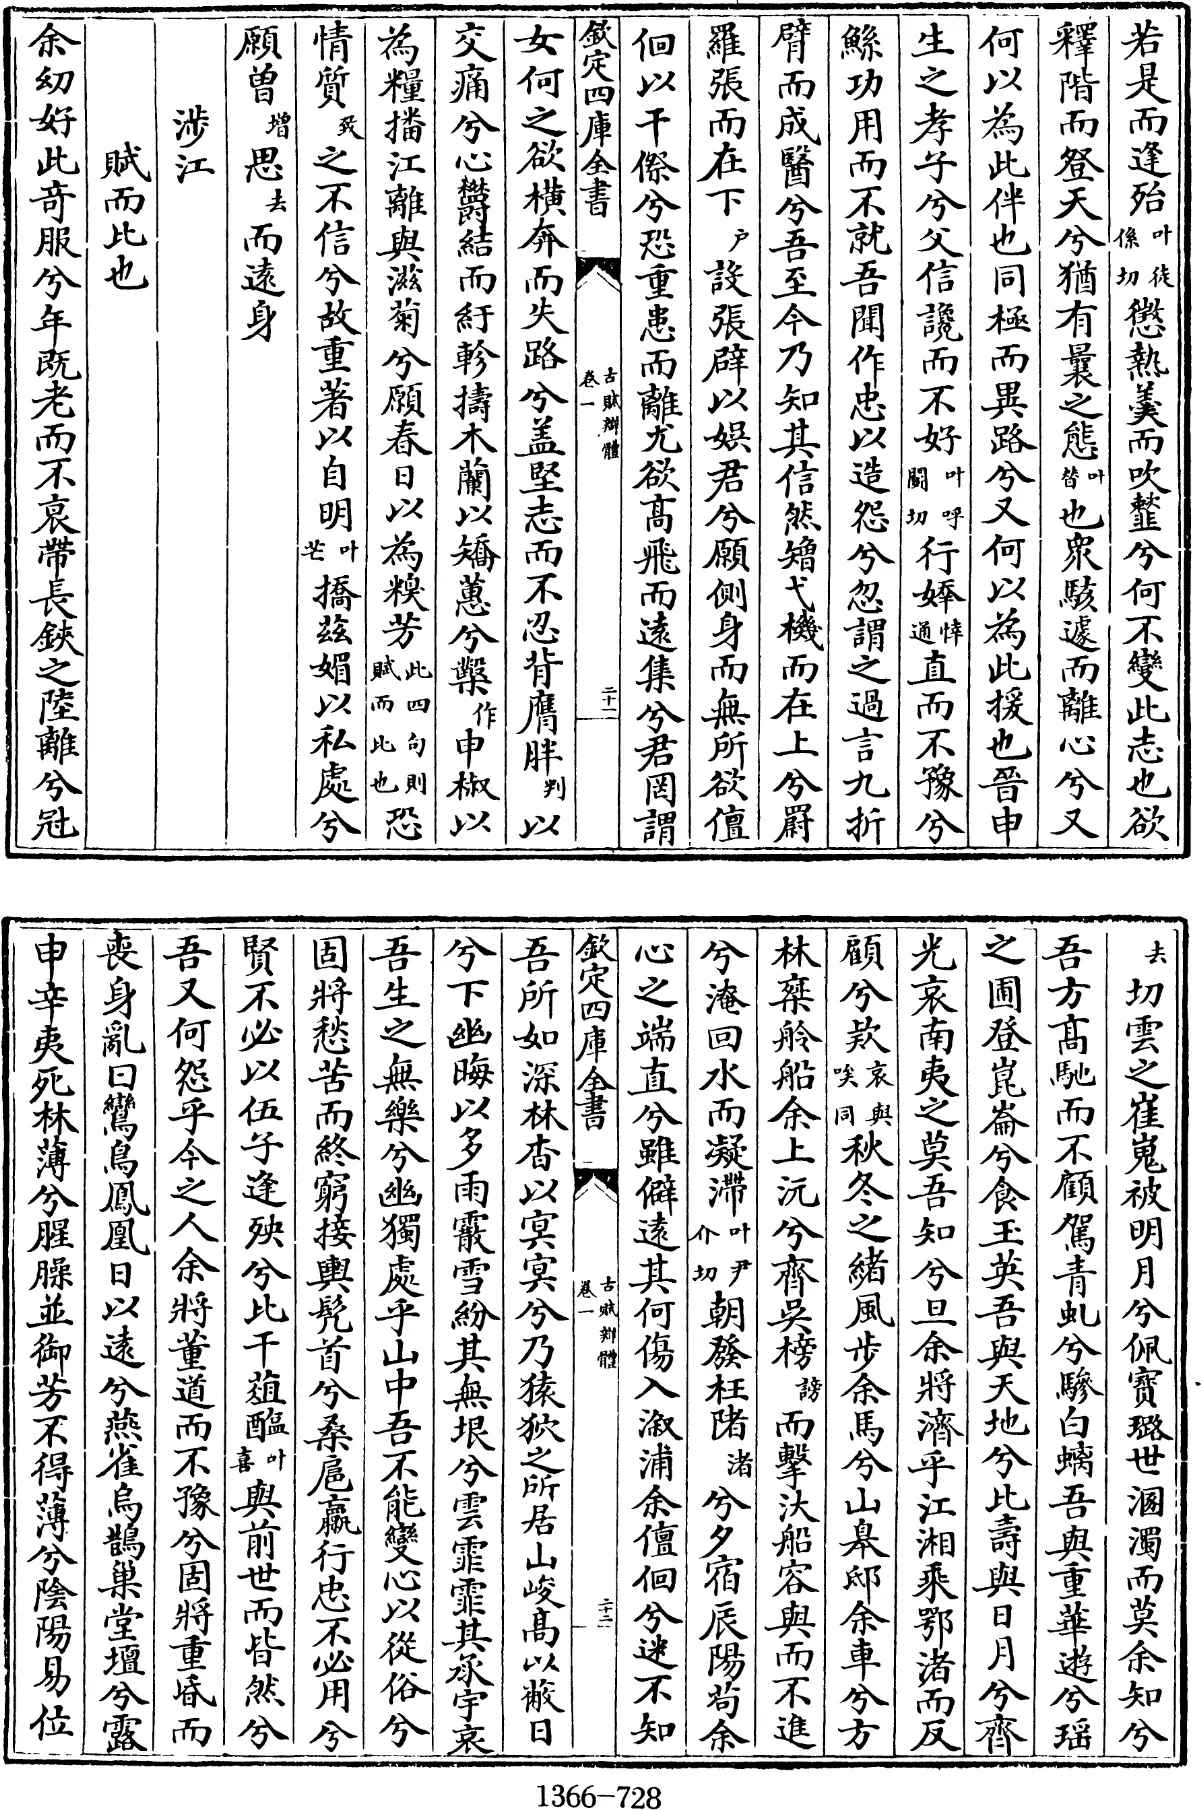 若是而逢殆叶徒係切懲熱羹而吹韲兮何不變此志也欲
釋階而登天兮猶有曩之態叶替也衆駭遽而離心兮又
何以為此伴也同極而異路兮又何以為此援也晉申
生之孝子兮父信讒而不好叶呼鬭切行婞悻通直而不豫兮
鯀功用而不就吾聞作忠以造怨兮忽謂之過言九折
臂而成醫兮吾至今乃知其信然矰弋機而在上兮罻
羅張而在下户設張辟以娯君兮願側身而無所欲儃
佪以干傺兮恐重患而離尤欲髙飛而遠集兮君罔謂
欽定四庫全書
古賦辯體
卷一
二十一
女何之欲横奔而失路兮盖堅志而不忍背膺胖判以
交痛兮心欝結而紆軫擣木蘭以矯蕙兮糳作申椒以
為糧播江離與滋菊兮願春日以為糗芳此四句則賦而比也恐
情質致之不信兮故重著以自明叶芒撟茲媚以私處兮
願曾增思去而遠身
涉江
賦而比也
余幼好此奇服兮年既老而不衰帶長鋏之陸離兮冠
去切雲之崔嵬被明月兮佩寳璐世溷濁而莫余知兮
吾方髙馳而不顧駕青虬兮驂白螭吾與重華遊兮瑶
之圃登崑崙兮食玉英吾與天地兮比壽與日月兮齊
光哀南夷之莫吾知兮旦余將濟乎江湘乘鄂渚而反
顧兮欵哀與唉同秋冬之緒風步余馬兮山皋邸余車兮方
林椉舲船余上沅兮齊吳榜謗而擊汏船容與而不進
兮淹回水而凝滯叶尹介切朝發枉陼渚兮夕宿辰陽茍余
心之端直兮雖僻遠其何傷入溆浦余儃佪兮迷不知
欽定四庫全書
古賦辯體
卷一
二十二
吾所如深林杳以㝠㝠兮乃猿狖之所居山峻髙以蔽日
兮下幽晦以多雨霰雪紛其無垠兮雲霏霏其承宇哀
吾生之無樂兮幽獨處乎山中吾不能變心以從俗兮
固將愁苦而終窮接輿髠首兮桑扈臝行忠不必用兮
賢不必以伍子逢殃兮比干葅醢叶喜與前世而皆然兮
吾又何怨乎今之人余將董道而不豫兮固將重昏而
喪身亂曰鸞鳥鳳凰日以遠兮燕雀烏鵲巢堂壇兮露
申辛夷死林薄兮腥臊並御芳不得薄兮陰陽易位
1366-728